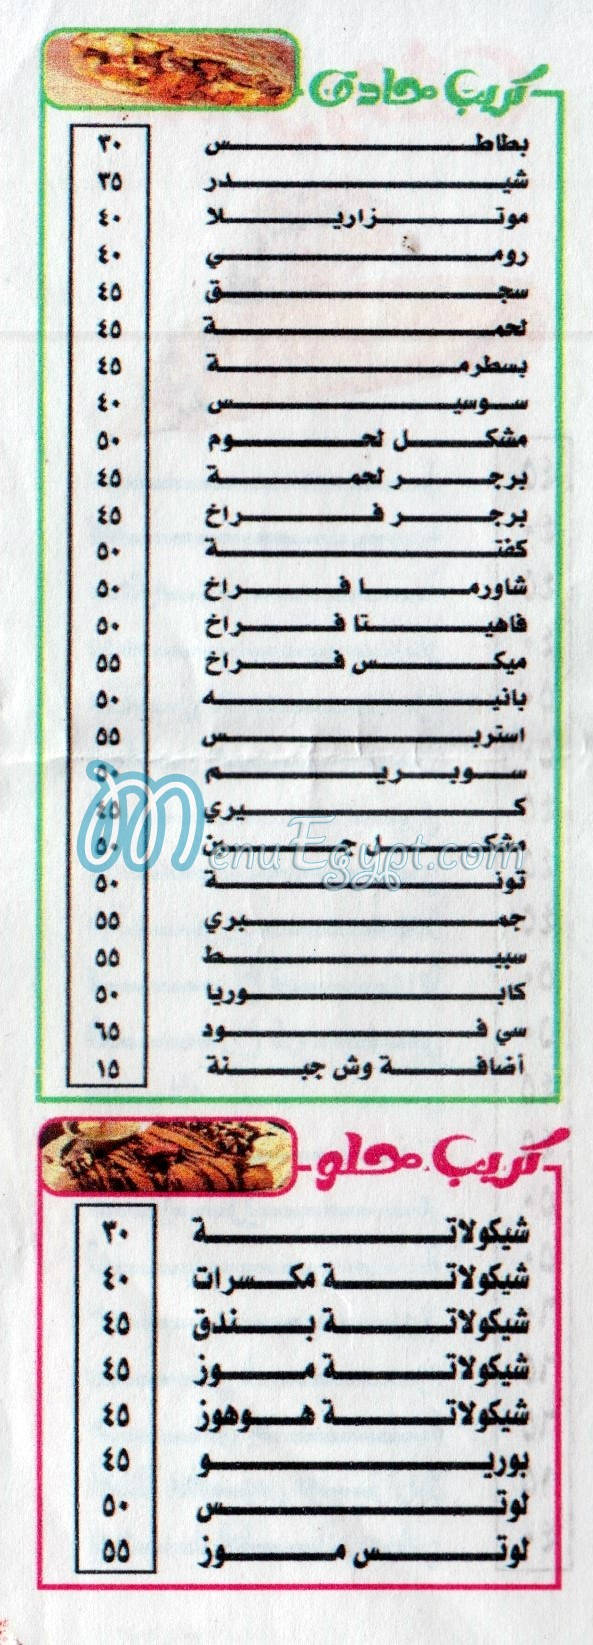 كريب محادق
بطاطس ٣٠
شيدر ٣٥
موتزاريلا ٤٠
رومي ٤٠
سجق ٤٥
لحمة ٤٥
بسطرمة ٤٥
سوسيس ٤٠
مشكل لحوم ٥٠
برجر لحمة ٤٥
برجر فراخ ٤٥
كفتة ٥٠
شاورما فراخ ٥٠
فاهيتا فراخ ٥٠
ميكس فراخ ٥٥
بانيه ٥٠
استربس ٥٥
سوبريم ٥٠
كيري ٤٥
مشكل جبن ٥٠
MenuEgypt.com
تونة ٥٠
جمبري ٥٥
سبيط ٥٥
كابوريا ٥٠
سي فود ٦٥
أضافة وش جبنة ١٥
كريب محلو
شيكولاتة ٣٠
شيكولاتة مكسرات ٤٠
شيكولاتة بندق ٤٥
شيكولاتة موز ٤٥
شيكولاتة هوهوز ٤٥
بوريو ٤٥
لوتس ٥٠
لوتس موز ٥٥